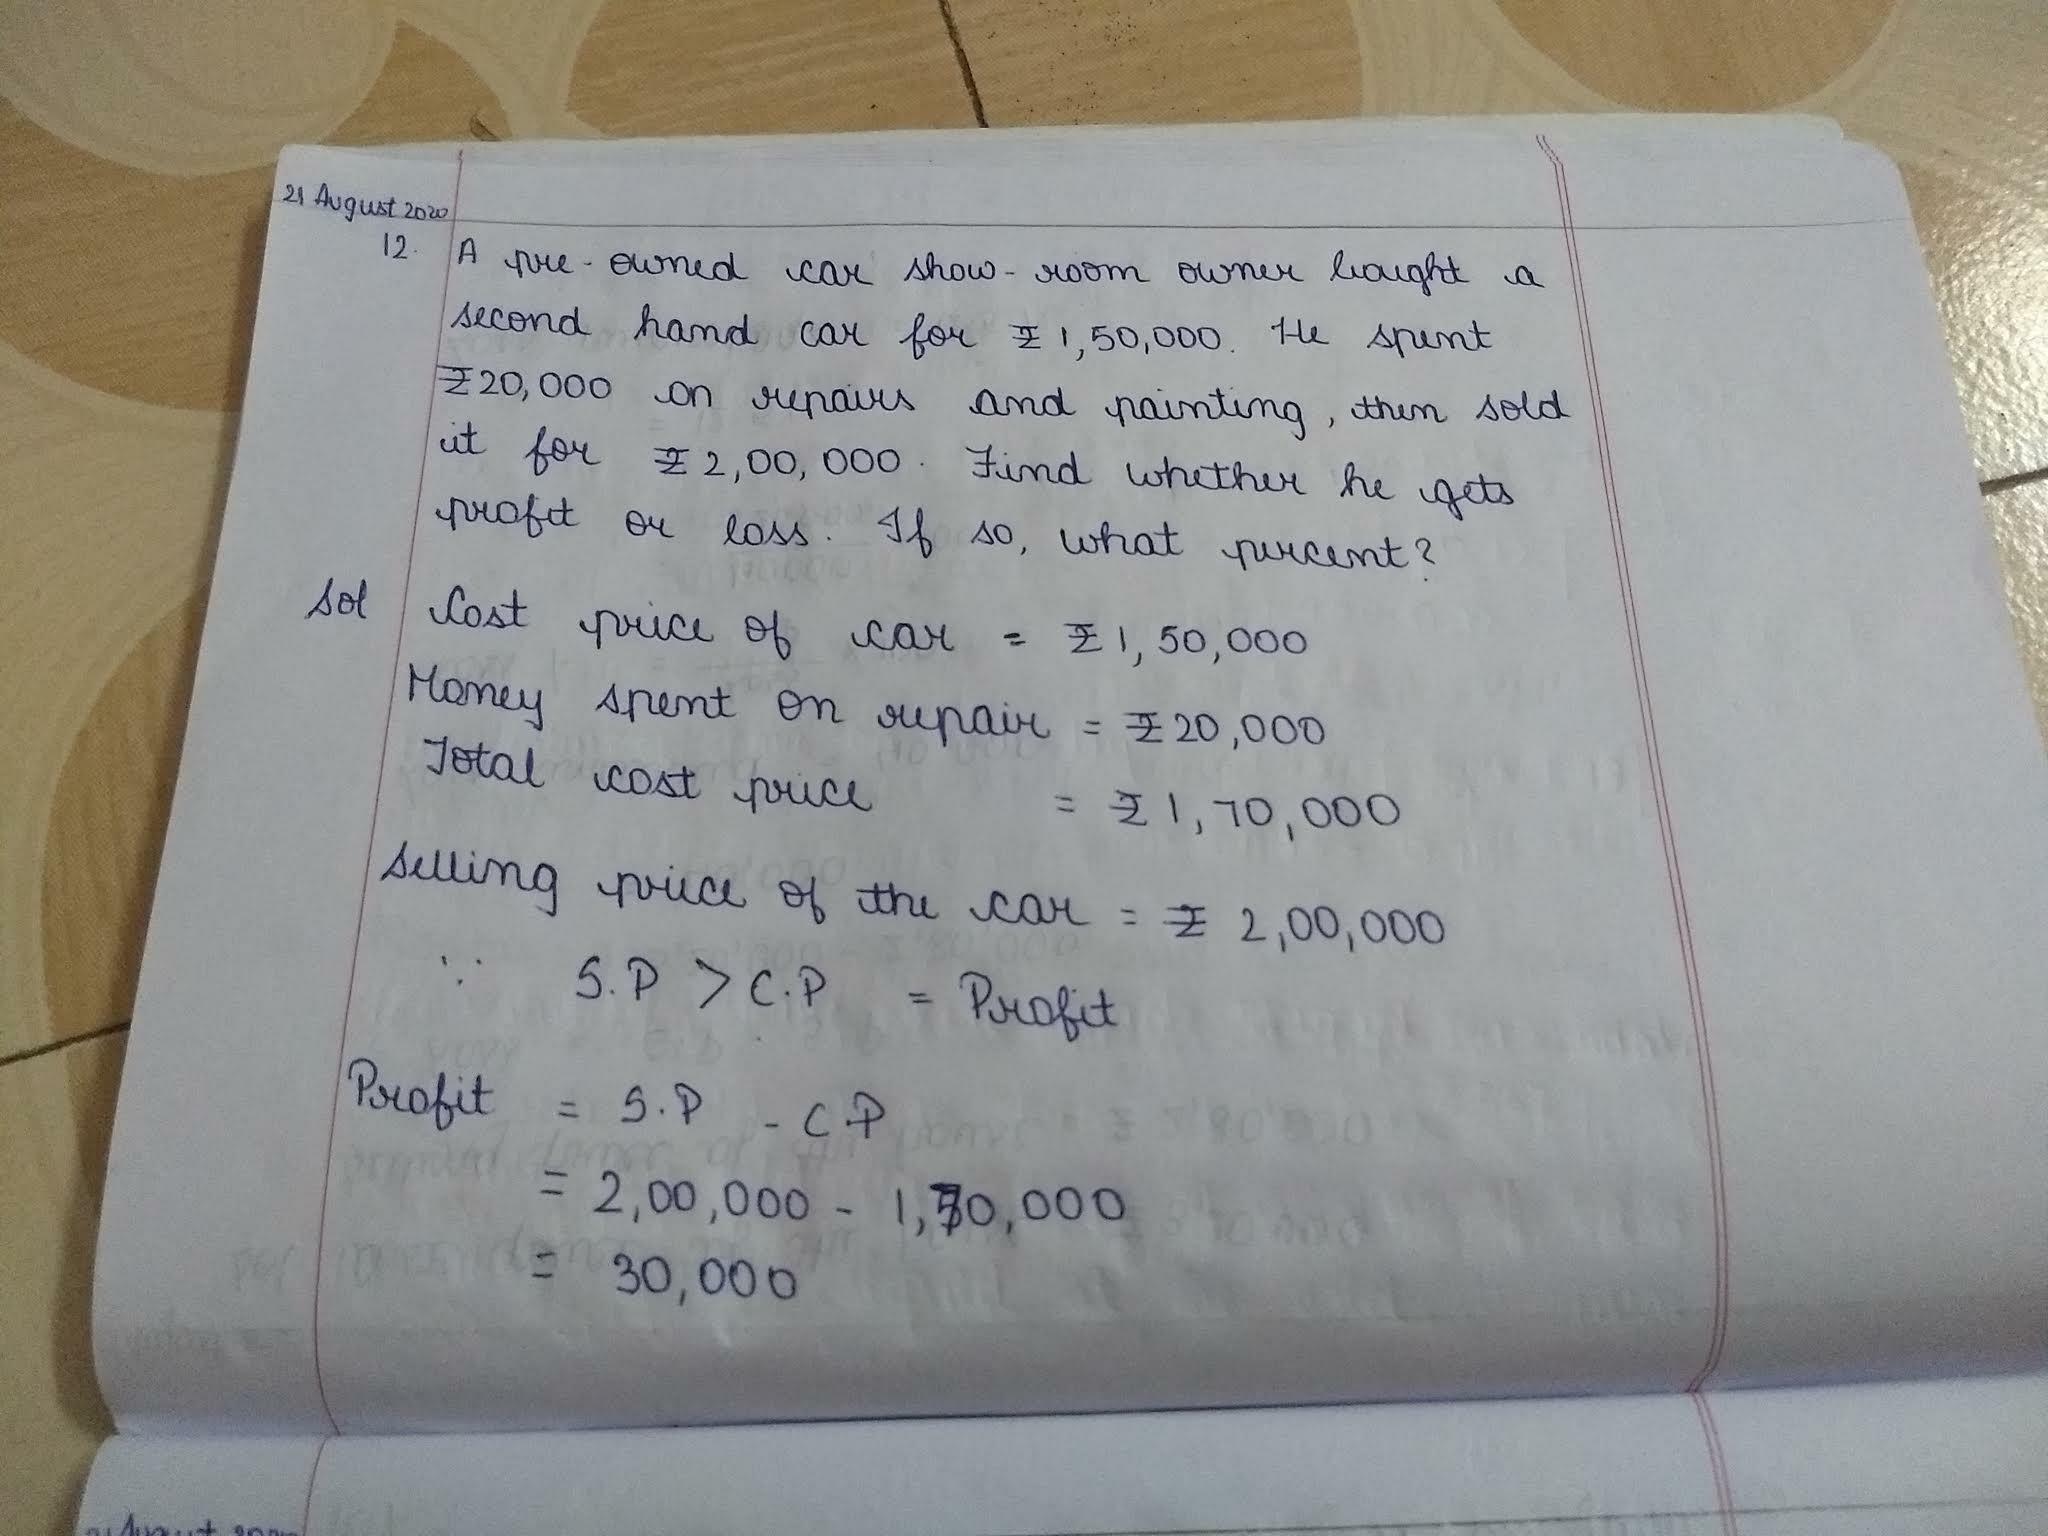 21 August 2020
12. A pre-owned car show-room owner bought a
second hand car for ₹ 1,50,000. He spent
₹20,000 on repairs and painting, then sold
it for ₹ 2,00,000. Find whether he gets
profit or loss. If so, what percent?
Sol Cost price of car = ₹ 1,50,000
Money spent on repair = ₹ 20,000
Total cost price = ₹ 1,70,000
Selling price of the car = ₹ 2,00,000
∵ S.P > C.P = Profit
Profit = S.P - C.P
= 2,00,000 - 1,70,000
= 30,000